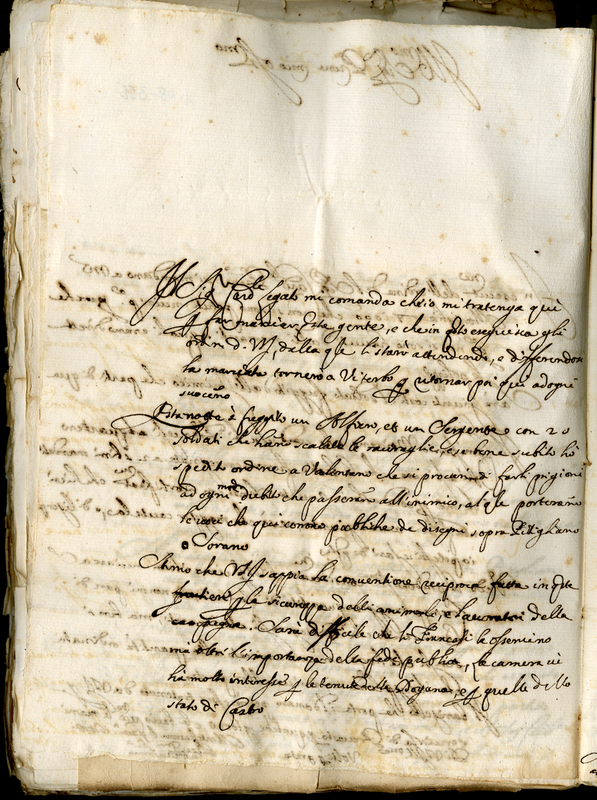 Il Sig.r Card.le Legato mi comanda ch'io mi tratenga quì
p far marciar q.sta gente, e che in q.sto eseguisca gli
ordini di V.S. dalla q.le li starò attendendo, e differendosi
la marciata tornerò a Viterbo p ritornar poi quì ad ogni
suo cenno
Questa notte è fuggito un Alfiero, et un Sergente con 20
soldati che han scalato le muraglie, e se bene subito hò
spedito ordine a Valentano che si procurino di farli prigioni
ad ogni modo dubito che passeranno all'inimico, al q.le porteranno
le voci che quì corrono publiche de disegni sopra Pitigliano
o Sorano
Stimo che V.S. sappia la conventione reciproca fatta in q.ste
frontiere p la sicurezza delli animali, e lavoratori della
campagna. Sarà difficile che li Francesi la osservino
ma oltre l'importanza della fede publica, la camera vi
hà molto interesse p le tenute della Dogana, e p quelle dello
stato di Castro